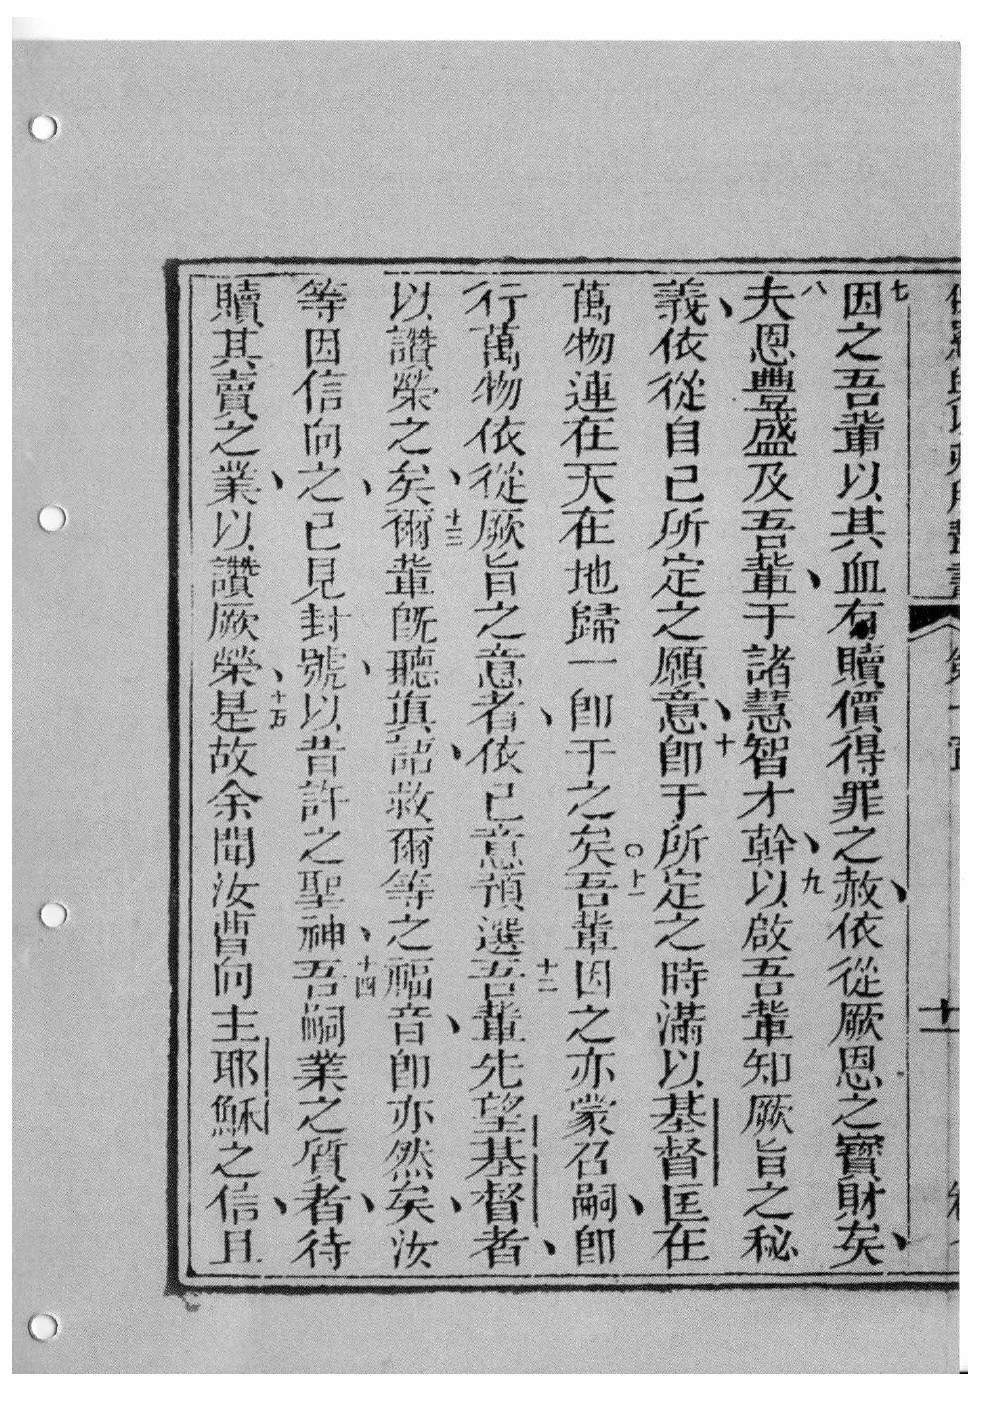 七因之吾輩以其血有贖價得罪之赦、依從厥恩之寶財矣、
八夫恩豐盛及吾輩、于諸慧智才幹、九以啟吾輩知厥旨之秘
義、依從自己所定之願意、十即于所定之時滿以基督匡在
萬物連在天在地歸一即于之矣○十一吾輩因之亦蒙召嗣、即
行萬物依從厥旨之意者、依己意預選十二吾輩先望基督者、
以讚榮之矣、十三爾輩既聽真詔、救爾等之福音、即亦然矣、汝
等因信向之、已見封號、以昔許之聖神、十四吾嗣業之質者、待
贖其賣之業、以讚厥榮、十五是故余聞汝曹向主耶穌之信、且
第一章
十一